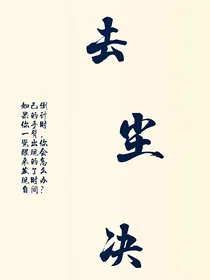 去尘决
如果你一觉醒来发现自
己的手臂出现的了时间
倒计时，你会怎么办？